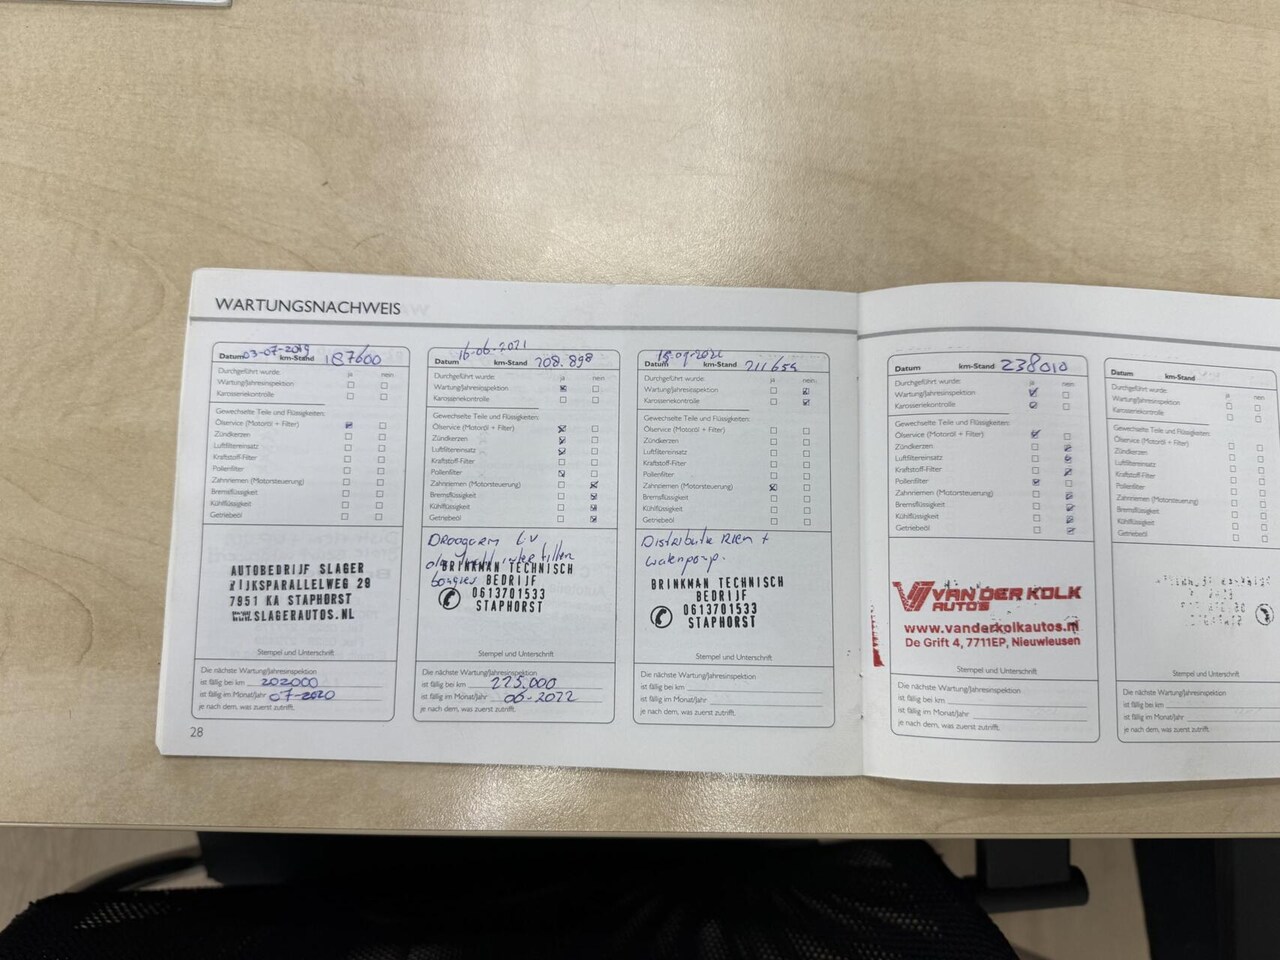 WARTUNGSNACHWEIS
Datum 03-07-2019 km-Stand 187600
Durchgeführt wurde: ja nein
Wartung/Jahresinspektion
Karosseriekontrolle
Gewechselte Teile und Flüssigkeiten:
Ölservice (Motoröl + Filter)
Zündkerzen
Luftfiltereinsatz
Kraftstoff-Filter
Pollenfilter
Zahnriemen (Motorsteuerung)
Bremsflüssigkeit
Kühlflüssigkeit
Getriebeöl
AUTOBEDRIJF SLAGER
RIJKSPARALLELWEG 29
7951 KA STAPHORST
WWW.SLAGERAUTOS.NL
Stempel und Unterschrift
Die nächste Wartung/Jahresinspektion
ist fällig bei km 202000
ist fällig im Monat/Jahr 07-2020
je nach dem, was zuerst zutrifft.
28
16-06-2021
Datum km-Stand 208.898
Durchgeführt wurde: ja nein
Wartung/Jahresinspektion
Karosseriekontrolle
Gewechselte Teile und Flüssigkeiten:
Ölservice (Motoröl + Filter)
Zündkerzen
Luftfiltereinsatz
Kraftstoff-Filter
Pollenfilter
Zahnriemen (Motorsteuerung)
Bremsflüssigkeit
Kühlflüssigkeit
Getriebeöl
bougies
BRINKMAN TECHNISCH
BEDRIJF
0613701533
STAPHORST
Stempel und Unterschrift
Die nächste Wartung/Jahresinspektion
ist fällig bei km 225.000
ist fällig im Monat/Jahr 06-2022
je nach dem, was zuerst zutrifft.
Datum km-Stand 211654
Durchgeführt wurde: ja nein
Wartung/Jahresinspektion
Karosseriekontrolle
Gewechselte Teile und Flüssigkeiten:
Ölservice (Motoröl + Filter)
Zündkerzen
Luftfiltereinsatz
Kraftstoff-Filter
Pollenfilter
Zahnriemen (Motorsteuerung)
Bremsflüssigkeit
Kühlflüssigkeit
Getriebeöl
Distributie Riem +
waterpomp.
BRINKMAN TECHNISCH
BEDRIJF
0613701533
STAPHORST
Stempel und Unterschrift
Die nächste Wartung/Jahresinspektion
ist fällig bei km
ist fällig im Monat/Jahr
je nach dem, was zuerst zutrifft.
Datum km-Stand 238010
Durchgeführt wurde: ja nein
Wartung/Jahresinspektion
Karosseriekontrolle
Gewechselte Teile und Flüssigkeiten:
Ölservice (Motoröl + Filter)
Zündkerzen
Luftfiltereinsatz
Kraftstoff-Filter
Pollenfilter
Zahnriemen (Motorsteuerung)
Bremsflüssigkeit
Kühlflüssigkeit
Getriebeöl
VAN DER KOLK
AUTOS
www.vanderkolkautos.nl
De Grift 4, 7711EP, Nieuwleusen
Stempel und Unterschrift
Die nächste Wartung/Jahresinspektion
ist fällig bei km
ist fällig im Monat/Jahr
je nach dem, was zuerst zutrifft.
Datum km-Stand
Durchgeführt wurde: ja nein
Wartung/Jahresinspektion
Karosseriekontrolle
Gewechselte Teile und Flüssigkeiten:
Ölservice (Motoröl + Filter)
Zündkerzen
Luftfiltereinsatz
Kraftstoff-Filter
Pollenfilter
Zahnriemen (Motorsteuerung)
Bremsflüssigkeit
Kühlflüssigkeit
Getriebeöl
Stempel und Unterschrift
Die nächste Wartung/Jahresinspektion
ist fällig bei km
ist fällig im Monat/Jahr
je nach dem, was zuerst zutrifft.